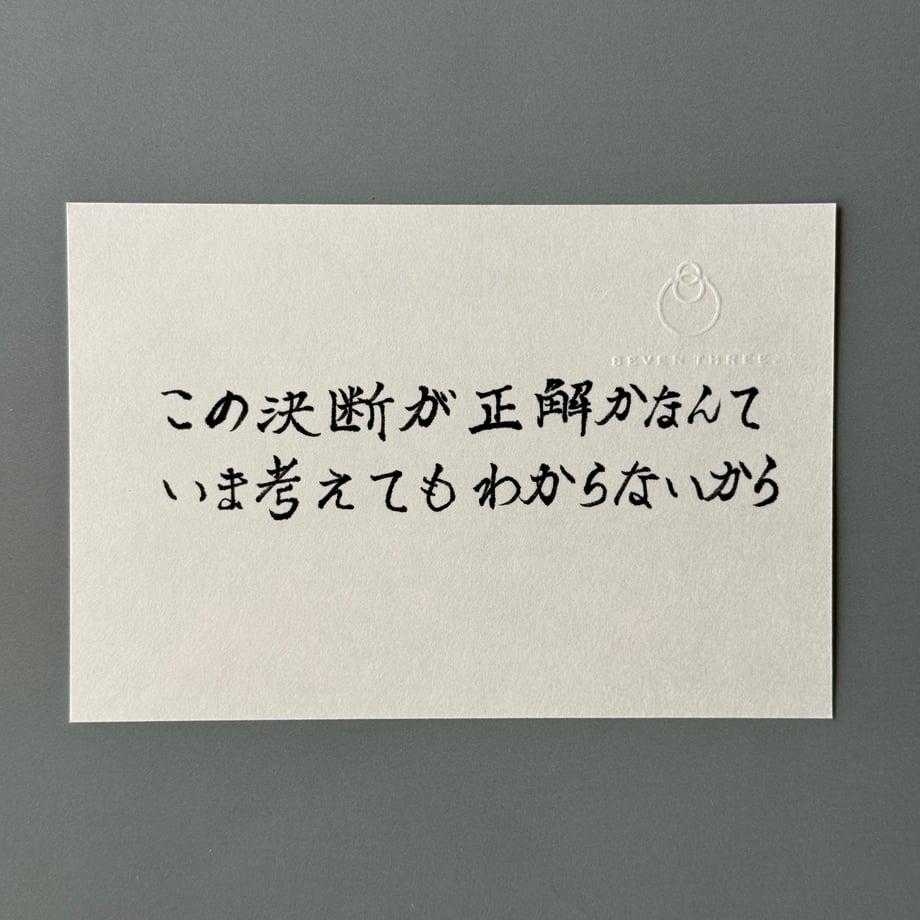 SEVEN THREE.
この決断が正解かなんて
いま考えてもわからないから